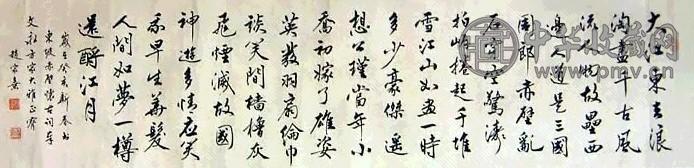 大江東去浪
淘盡千古風
流人物故壘西
邊人道是三國
周郎赤壁亂
石穿空驚濤
拍岸捲起千堆
雪江山如畫一時
多少豪傑遥
想公瑾當年小
喬初嫁了雄姿
英發羽扇綸巾
談笑間檣櫓灰
飛煙滅故國
神遊多情應笑
我早生華髮
人間如夢一樽
還酹江月
歲在癸亥新春書
東坡赤壁懷古詞奉
方家大雅正
中华收藏网